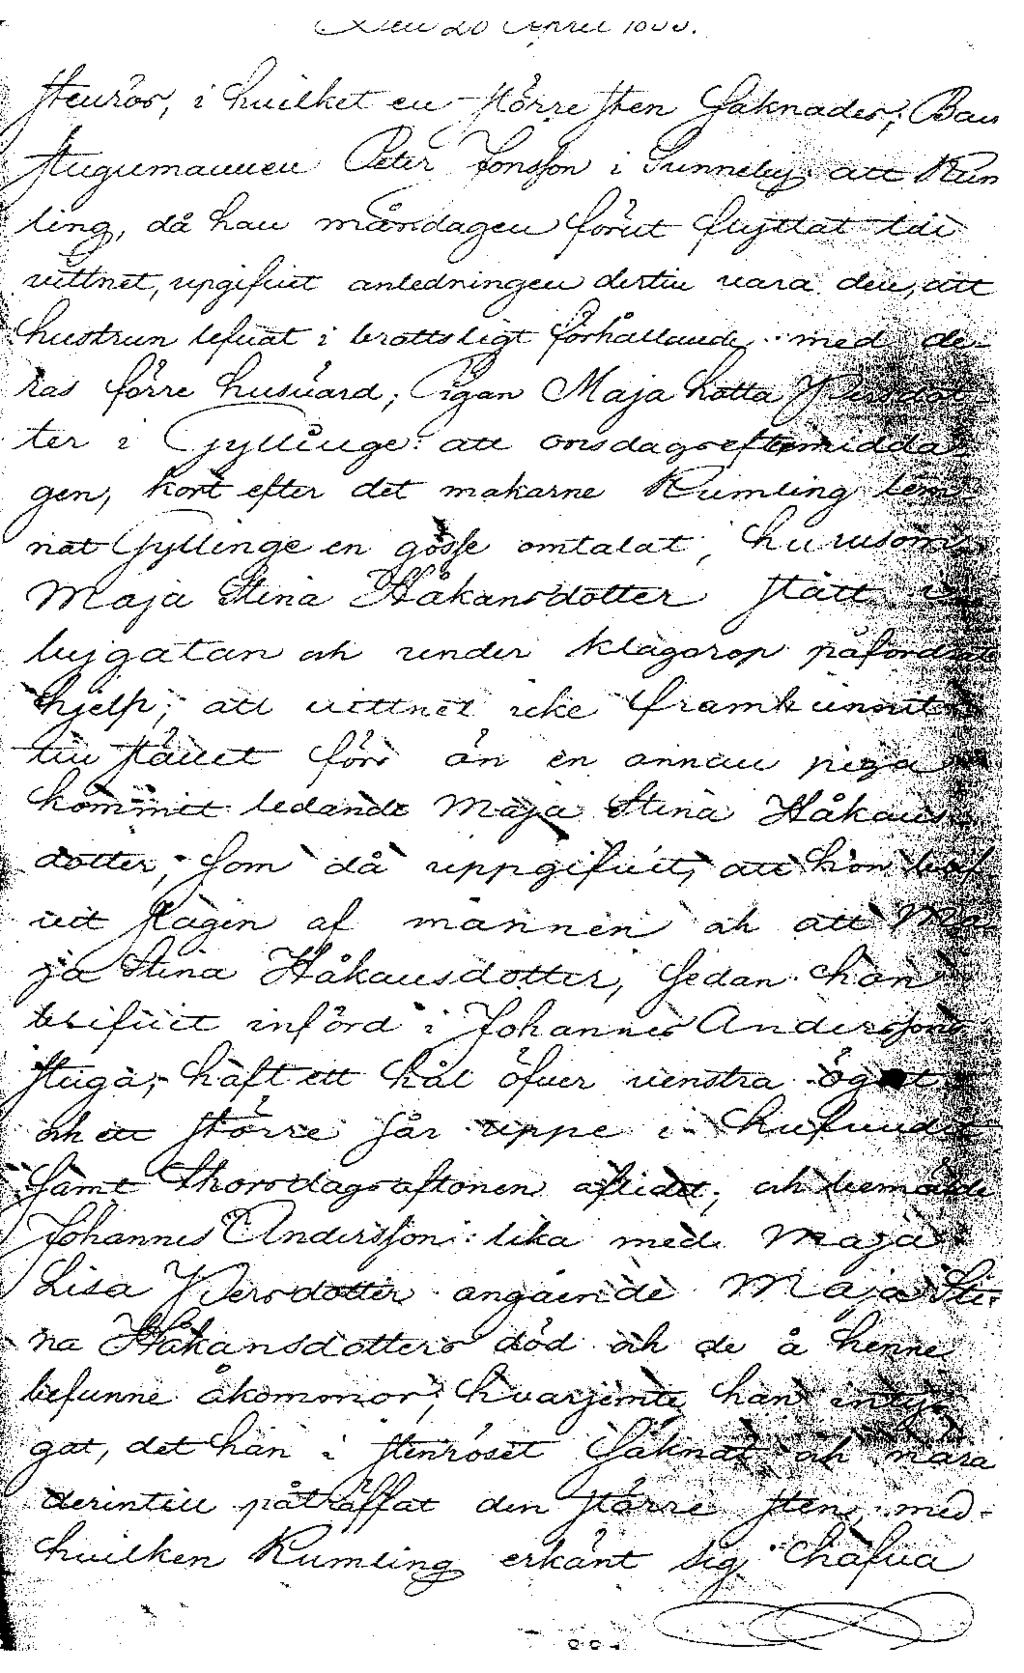 Den 20 April
stenrör, i hvilket en större sten saknades; Back
stugumannen Peter Jonsson i Sunneby: att Rum
ling, då han måndagen förut flyttat till
vittnet, upgifvit anledningen dertill vara den, att
hustrun lefvat i brottsligt förhållande med de-
ras förre husvärd; Pigan Maja Lotta Persdot-
ter i Gyllinge: att onsdagseftermidda-
gen, kort efter det makarne Rumling lem-
nat Gyllinge en gosse omtalat, hurusom
Maja Stina Håkansdotter stått i
bygatan och under klagorop påfordrat
hjelp; att vittnet icke framkunnit
till stället förr än en annan piga
kommit ledande Maja Stina Håkans-
dotter, som då uppgifvit, att hon blif-
vit slagen af mannen och att Ma-
ja Stina Håkansdotter, sedan hon
blifvit införd i Johannes Anderssons
stuga, haft ett hål öfver venstra ögat
och ett större sår uppe i hufvudet
samt thorsdagsaftonen aflidit; och bemälde
Johannes Andersson: lika med Maja
Lisa Persdotter angående Maja Sti-
na Håkansdotters död och de å henne
befunne åkommor, hvarjemte han inty-
gat, det han i stenröset saknat och nära
derintill påträffat den större sten, med
hvilken Rumling erkänt sig hafva